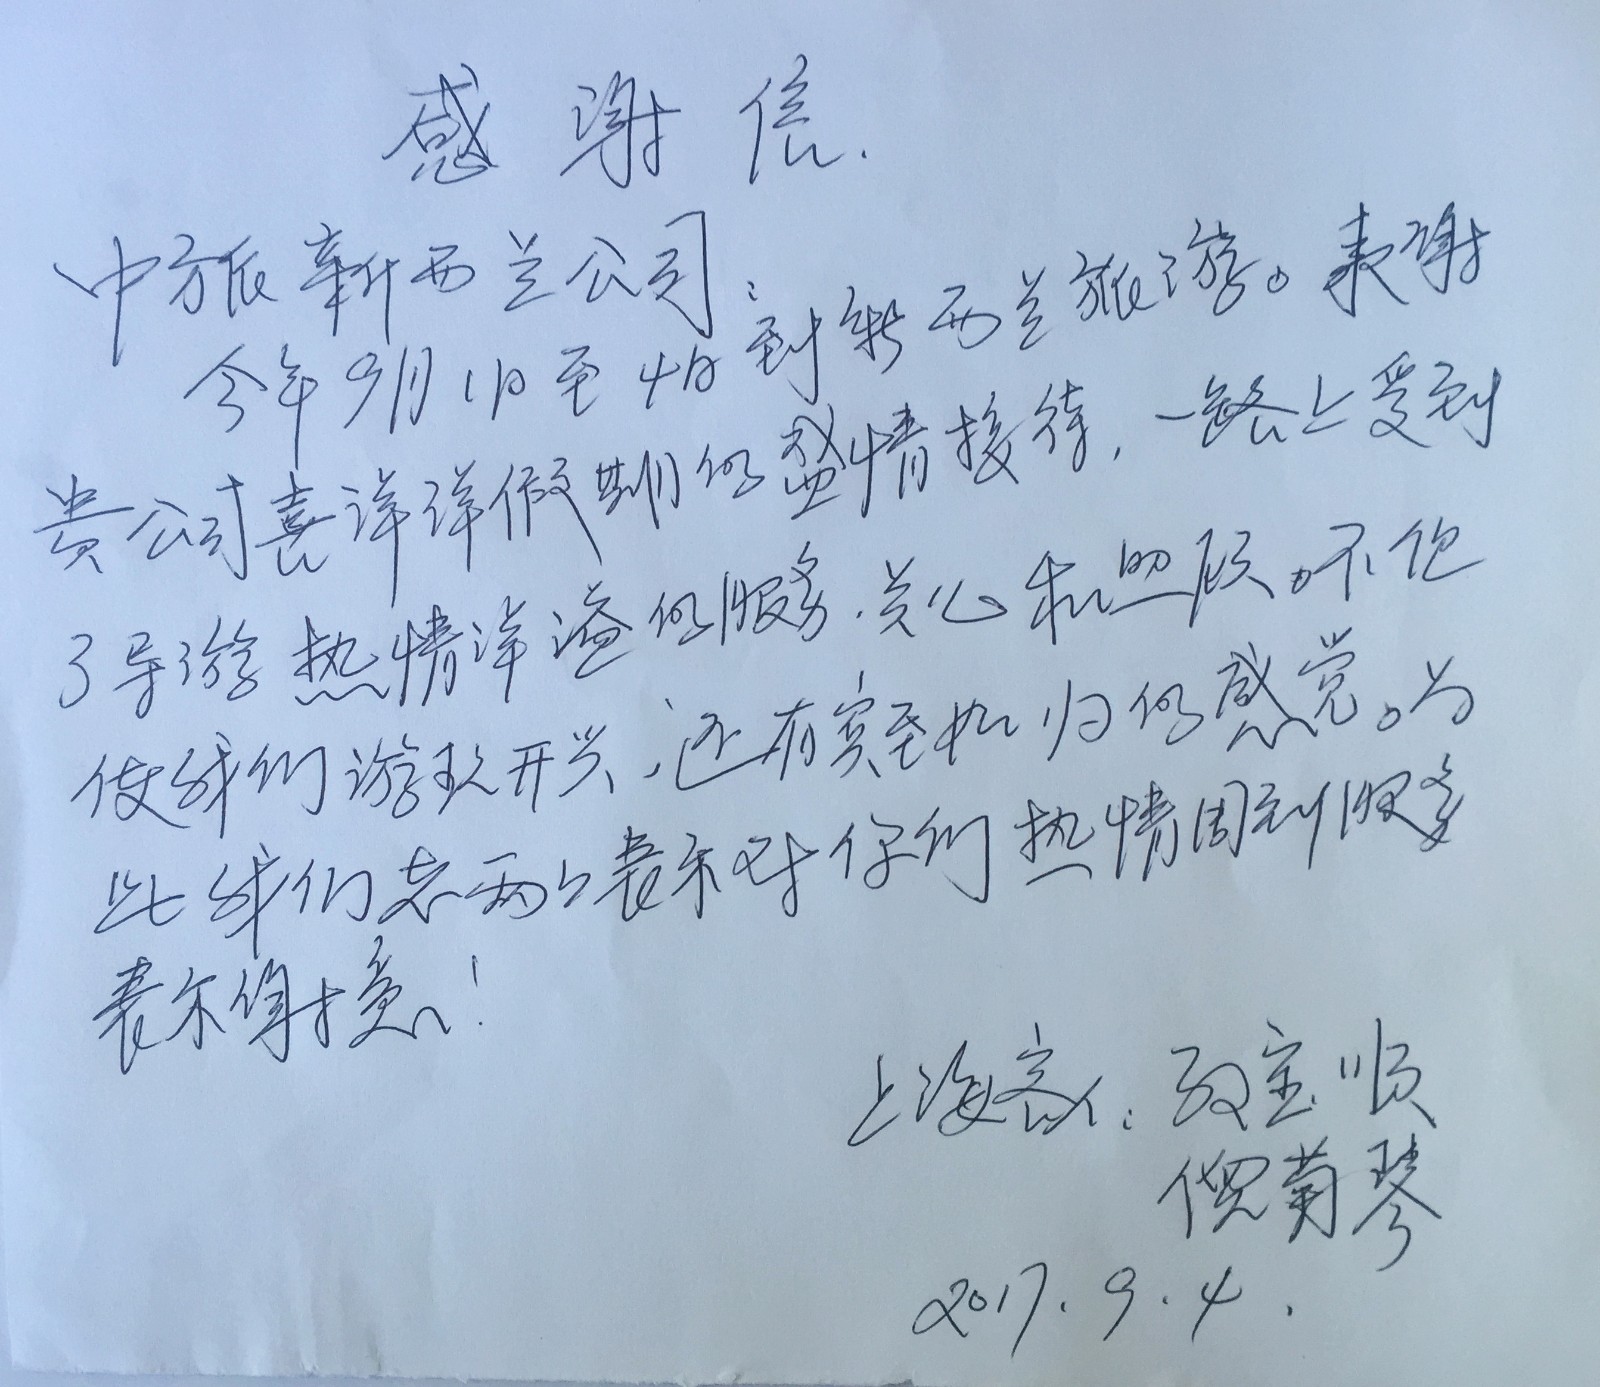 感谢信.
中旅新西兰公司:
今年9月1日至4日到新西兰旅游。表谢
贵公司喜洋洋假期的盛情接待,一路上受到
了导游热情洋溢的服务.关心和照顾。不但
使我们游玩开兴,还有宾至如归的感觉。为
此我们老两口表示对你们热情周到服务
表示谢意!
上海客人: 宝顺
倪菊琴
2017.9.4.